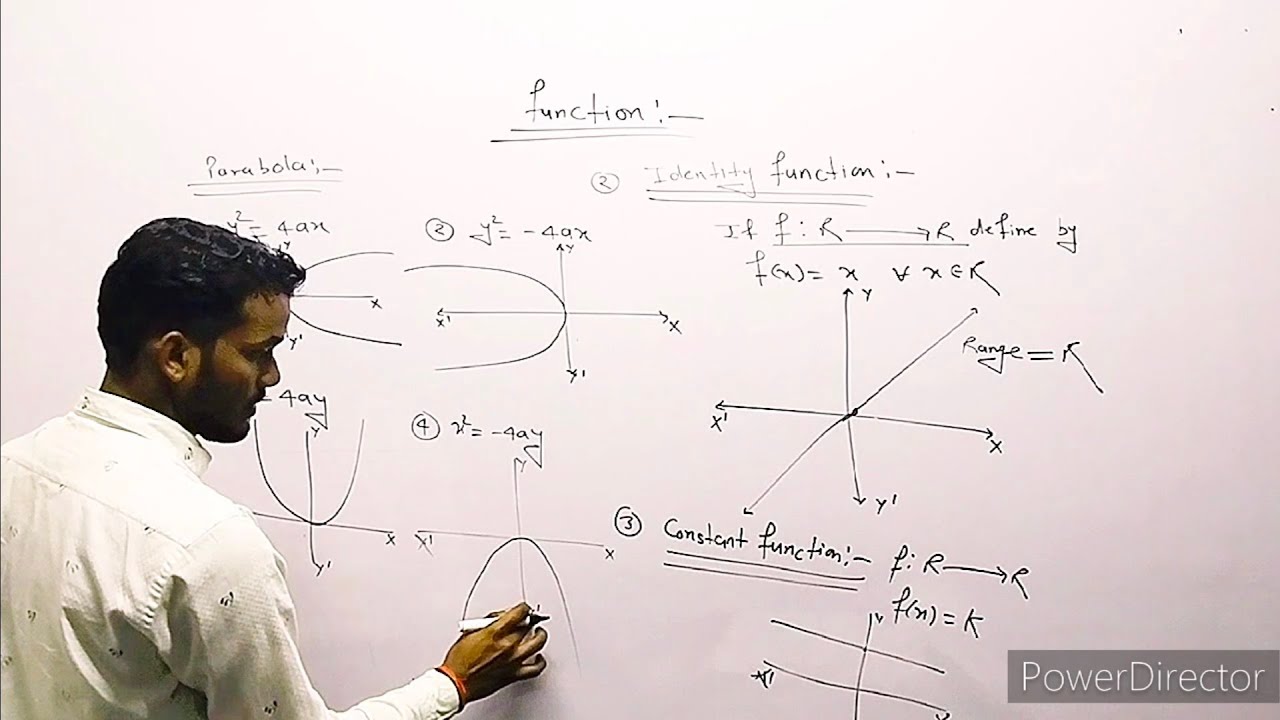 Function:-
Parabola:-
y² = 4ax
Y
X
Y'
② y² = -4ax
Y
X'
X
Y'
= 4ay
Y
X
Y'
④ x² = -4ay
Y
X'
X
② Identity function:-
If f: R → R define by
f(x) = x ∀ x ∈ R
Y
Range = R
X'
X
Y'
③ Constant function:- f: R → R
f(x) = K
Y
X'
X
PowerDirector